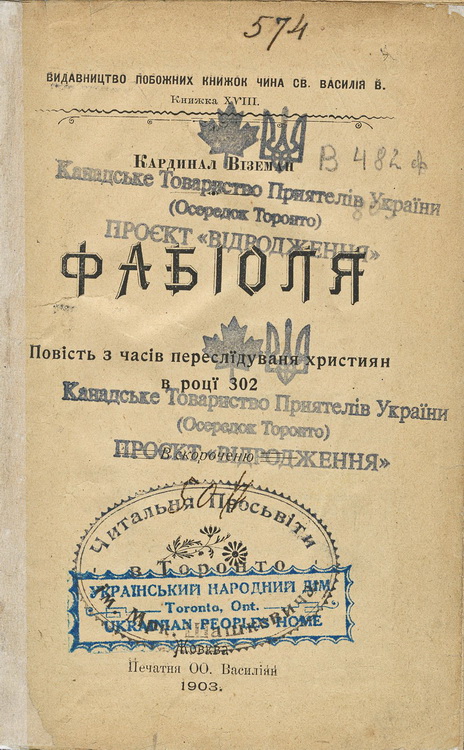 574
ВИДАВНИЦТВО ПОБОЖНИХ КНИЖОК ЧИНА СВ. ВАСИЛІЯ В.
Книжка XVIII.
Кардинал Віземан
В 482 ф
Канадське Товариство Приятелів України
(Осередок Торонто)
ПРОЄКТ «ВІДРОДЖЕННЯ»
ФАБІОЛЯ
Повість з часів переслїдуваня християн
в році 302
Канадське Товариство Приятелів України
(Осередок Торонто)
ПРОЄКТ «ВІДРОДЖЕННЯ»
В скороченю
Читальня Просьвіти
в Торонто
ім. Мар. Шашкевича
УКРАЇНСЬКИЙ НАРОДНИЙ ДІМ
Toronto, Ont.
UKRAINIAN PEOPLE'S HOME
Жовква
Печатня ОО. Василіян
1903.